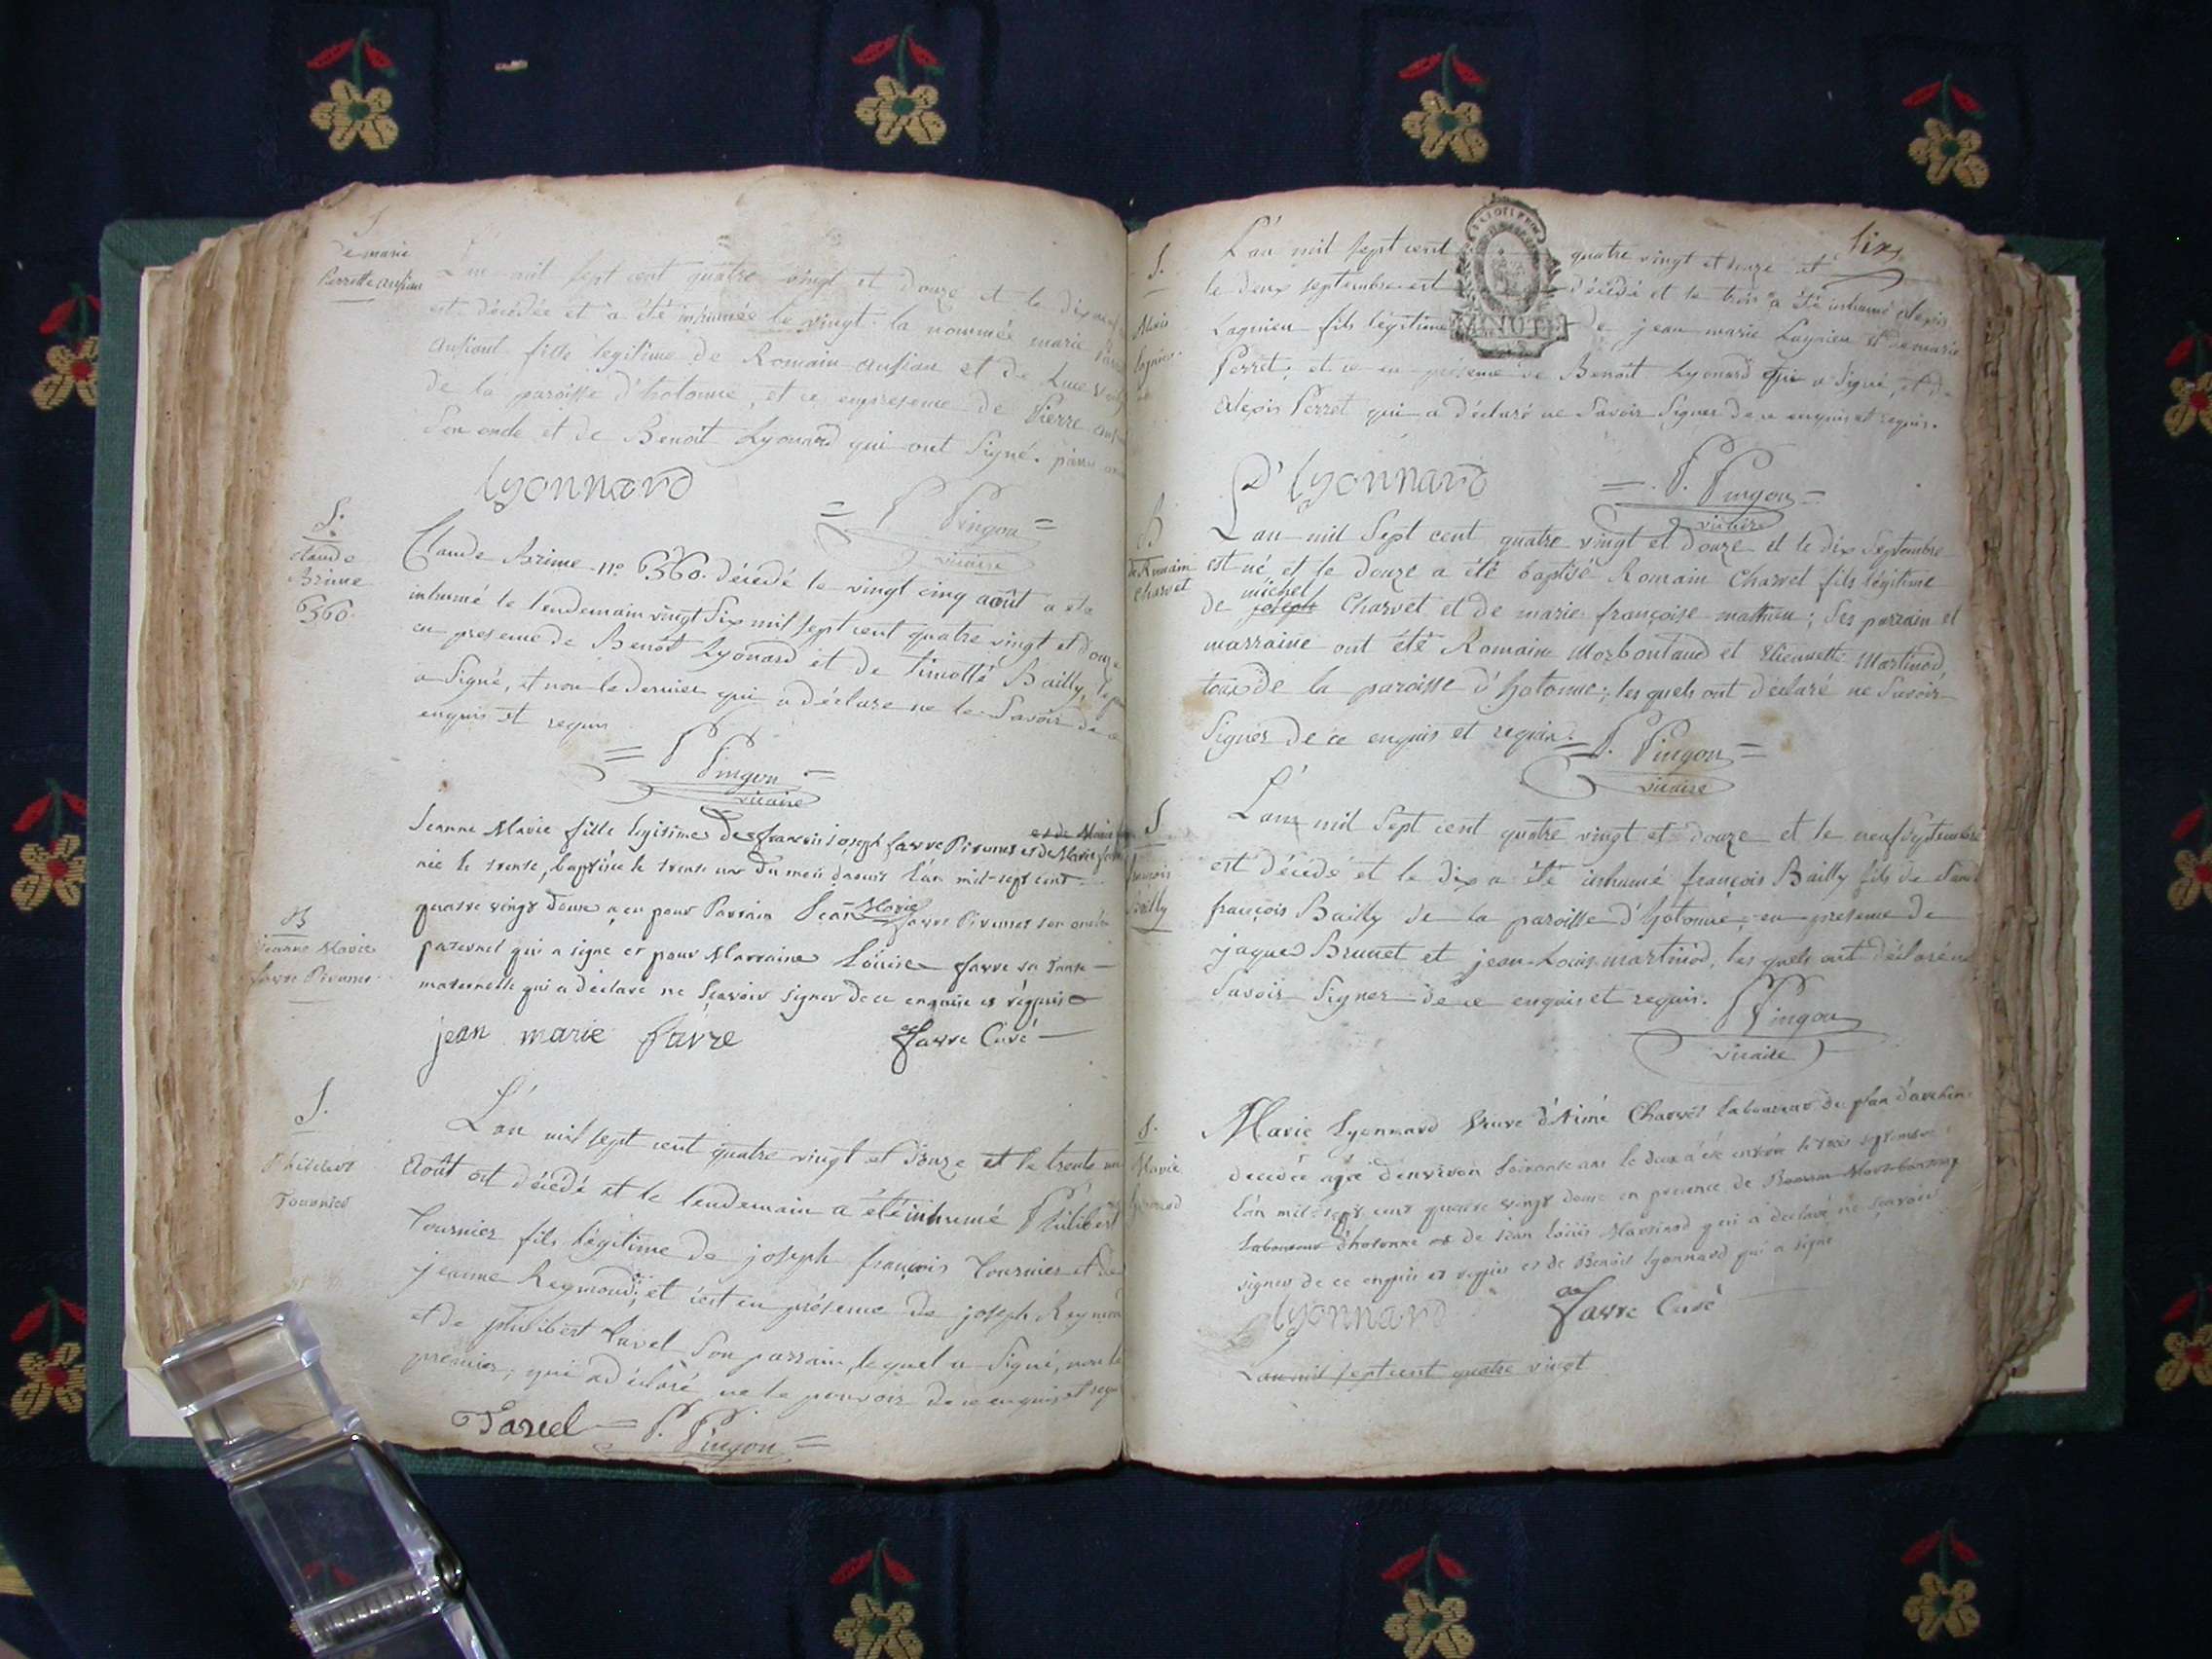 S
de marie
Perrette ansian
L'an mil sept cent quatre vingt et douze et le dix neuf
est décédée et a été inhumée le vingt la nommée marie
ansiant fille legitime de Romain ansian et de Luce
de la paroisse d'hotonne, et ce en presence de Pierre
son oncle et de Benoît Lyonard qui ont signé.
lyonnard
= P Pingon =
vicaire
S.
claude
Brime
6360.
Claude Brime n° 6360. décédé le vingt cinq août a été
inhumé le lendemain vingt six mil sept cent quatre vingt et douze
en presence de Benoît Lyonard et de timotté Bailly,
a signé, et non le dernier qui a déclaré ne le savoir de ce
enquis et requis
= P Pingon =
vicaire
B
jeanne Marie
favre Pirunet
Jeanne Marie fille legitime de francois joseph favre Pirunet et de Marie
née le trente, baptisée le trente un du mois daoust l'an mil-sept cent
quatre vingt douze a eu pour Parrain Jean Marie favre Pirunet son oncle
paternel qui a signé et pour Marraine Louise favre sa tante
maternelle qui a déclaré ne sçavoir signer de ce enquise et réquise
jean marie favre
favre Curé
S.
Philibert
Tournier
L'an mil sept cent quatre vingt et douze et le trente un
Août est décédé et le lendemain a été inhumé Philibert
Tournier fils légitime de joseph françois Tournier et de
jeanne Reymond; et c'est en présence de joseph Reymond
et de philibert Tavel son parrain, lequel a signé, non le
premier, qui a déclaré ne le pouvoir de ce enquis et requis
Tavel = P. Pingon =
six
S.
Alexis
Lagnieu
L'an mil sept cent quatre vingt et douze et
le deux septembre est décédé et le trois a été inhumé alexis
Lagnieu fils légitime de jean marie Lagnieu et de marie
Perret; et ce en présence de Benoît Lyonard qui a signé, et d'
alexis Perret qui a déclaré ne savoir signer de ce enquis et requis.
lyonnard
= P. Pingon =
vicaire
B
de Romain
charvet
L'an mil sept cent quatre vingt et douze et le dix septembre
est né et le douze a été baptisé Romain charvet fils légitime
michel
de joseph Charvet et de marie françoise mathieu; ses parrain et
marraine ont été Romain Morbontand et Etiennette Martinod,
tous de la paroisse d'hotonne; lesquels ont déclaré ne savoir
signer de ce enquis et requis.
= P. Pingon =
vicaire
S
françois
Bailly
L'an mil sept cent quatre vingt et douze et le neuf septembre
est décédé et le dix a été inhumé françois Bailly fils de
françois Bailly de la paroisse d'hotonne; en presence de
jaques Brunet et jean-Louis martinod, lesquels ont déclaré ne
savoir signer de ce enquis et requis.
P Pingon
vicaire
S.
Marie
Lyonnard
Marie Lyonnard veuve d'Aimé Charvet laboureur du plan d'
decedée agée d'environ soixante ans le deux a été enterrée le trois septembre
l'an mil-sept cent quatre vingt douze en presence de Romain Morbontand
laboureur d'hotonne et de jean louis Martinod qui a declaré ne sçavoir
signer de ce enquis et requis et de Benoit Lyonnard qui a signé
lyonnard
favre Curé
L'an mil sept cent quatre vingt